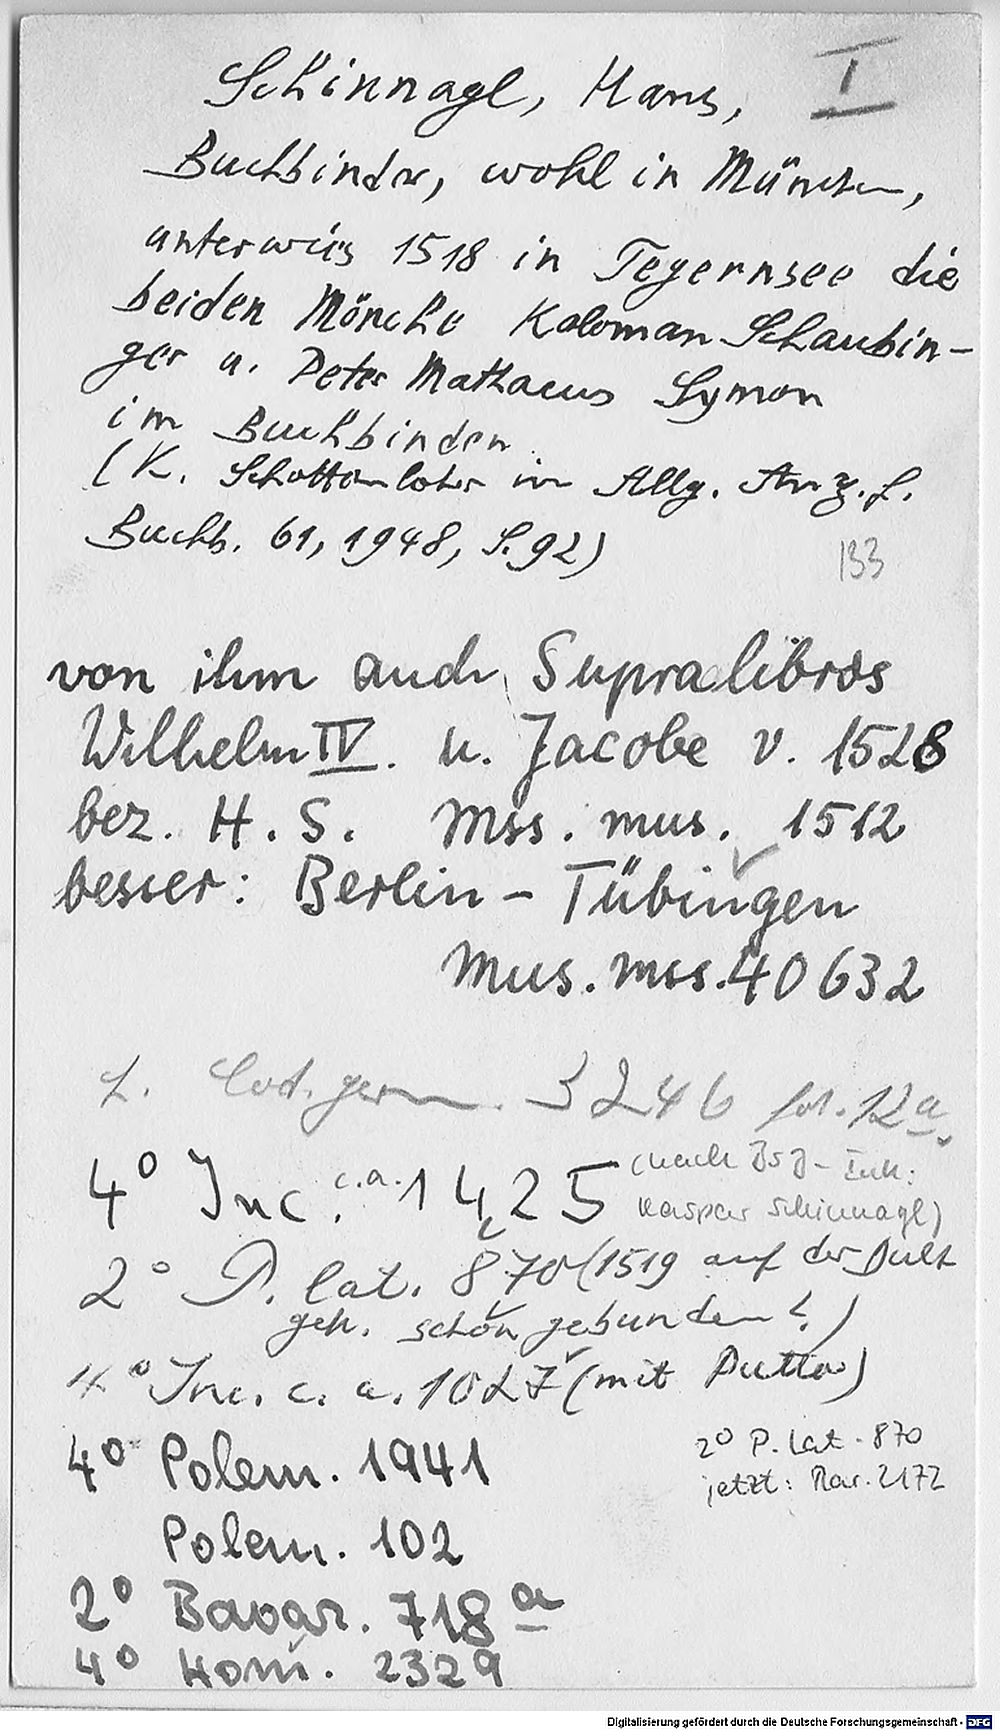 I
Schinnagl, Hans,
Buchbinder, wohl in München,
unterwies 1518 in Tegernsee die
beiden Mönche Koloman Schaubin-
ger u. Peter Mathaeus Symon
im Buchbinden
(K. Schottenloher im Allg. Anz. f.
Buchb. 61, 1948, S. 92)
133
von ihm auch Supralibros
Wilhelm IV. u. Jacobe v. 1528
bez. H. S. Mss. mus. 1512
besser: Berlin - Tübingen
Mus. mss. 40632
f. Cod. germ. 3246 fol. 12a.
4° Inc. c.a. 1425 (nach BSB-Ink:
Kaspar Schinnagl)
2° P. lat. 870 (1519 auf der Dult
gek. schön gebunden!)
4° Inc. c. a. 1027 (mit Putto)
4° Polem. 1941
2° P. lat. 870
jetzt: Rar. 2172
Polem. 102
2° Bavar. 718 a
4° Hom. 2329
Digitalisierung gefördert durch die Deutsche Forschungsgemeinschaft - DFG